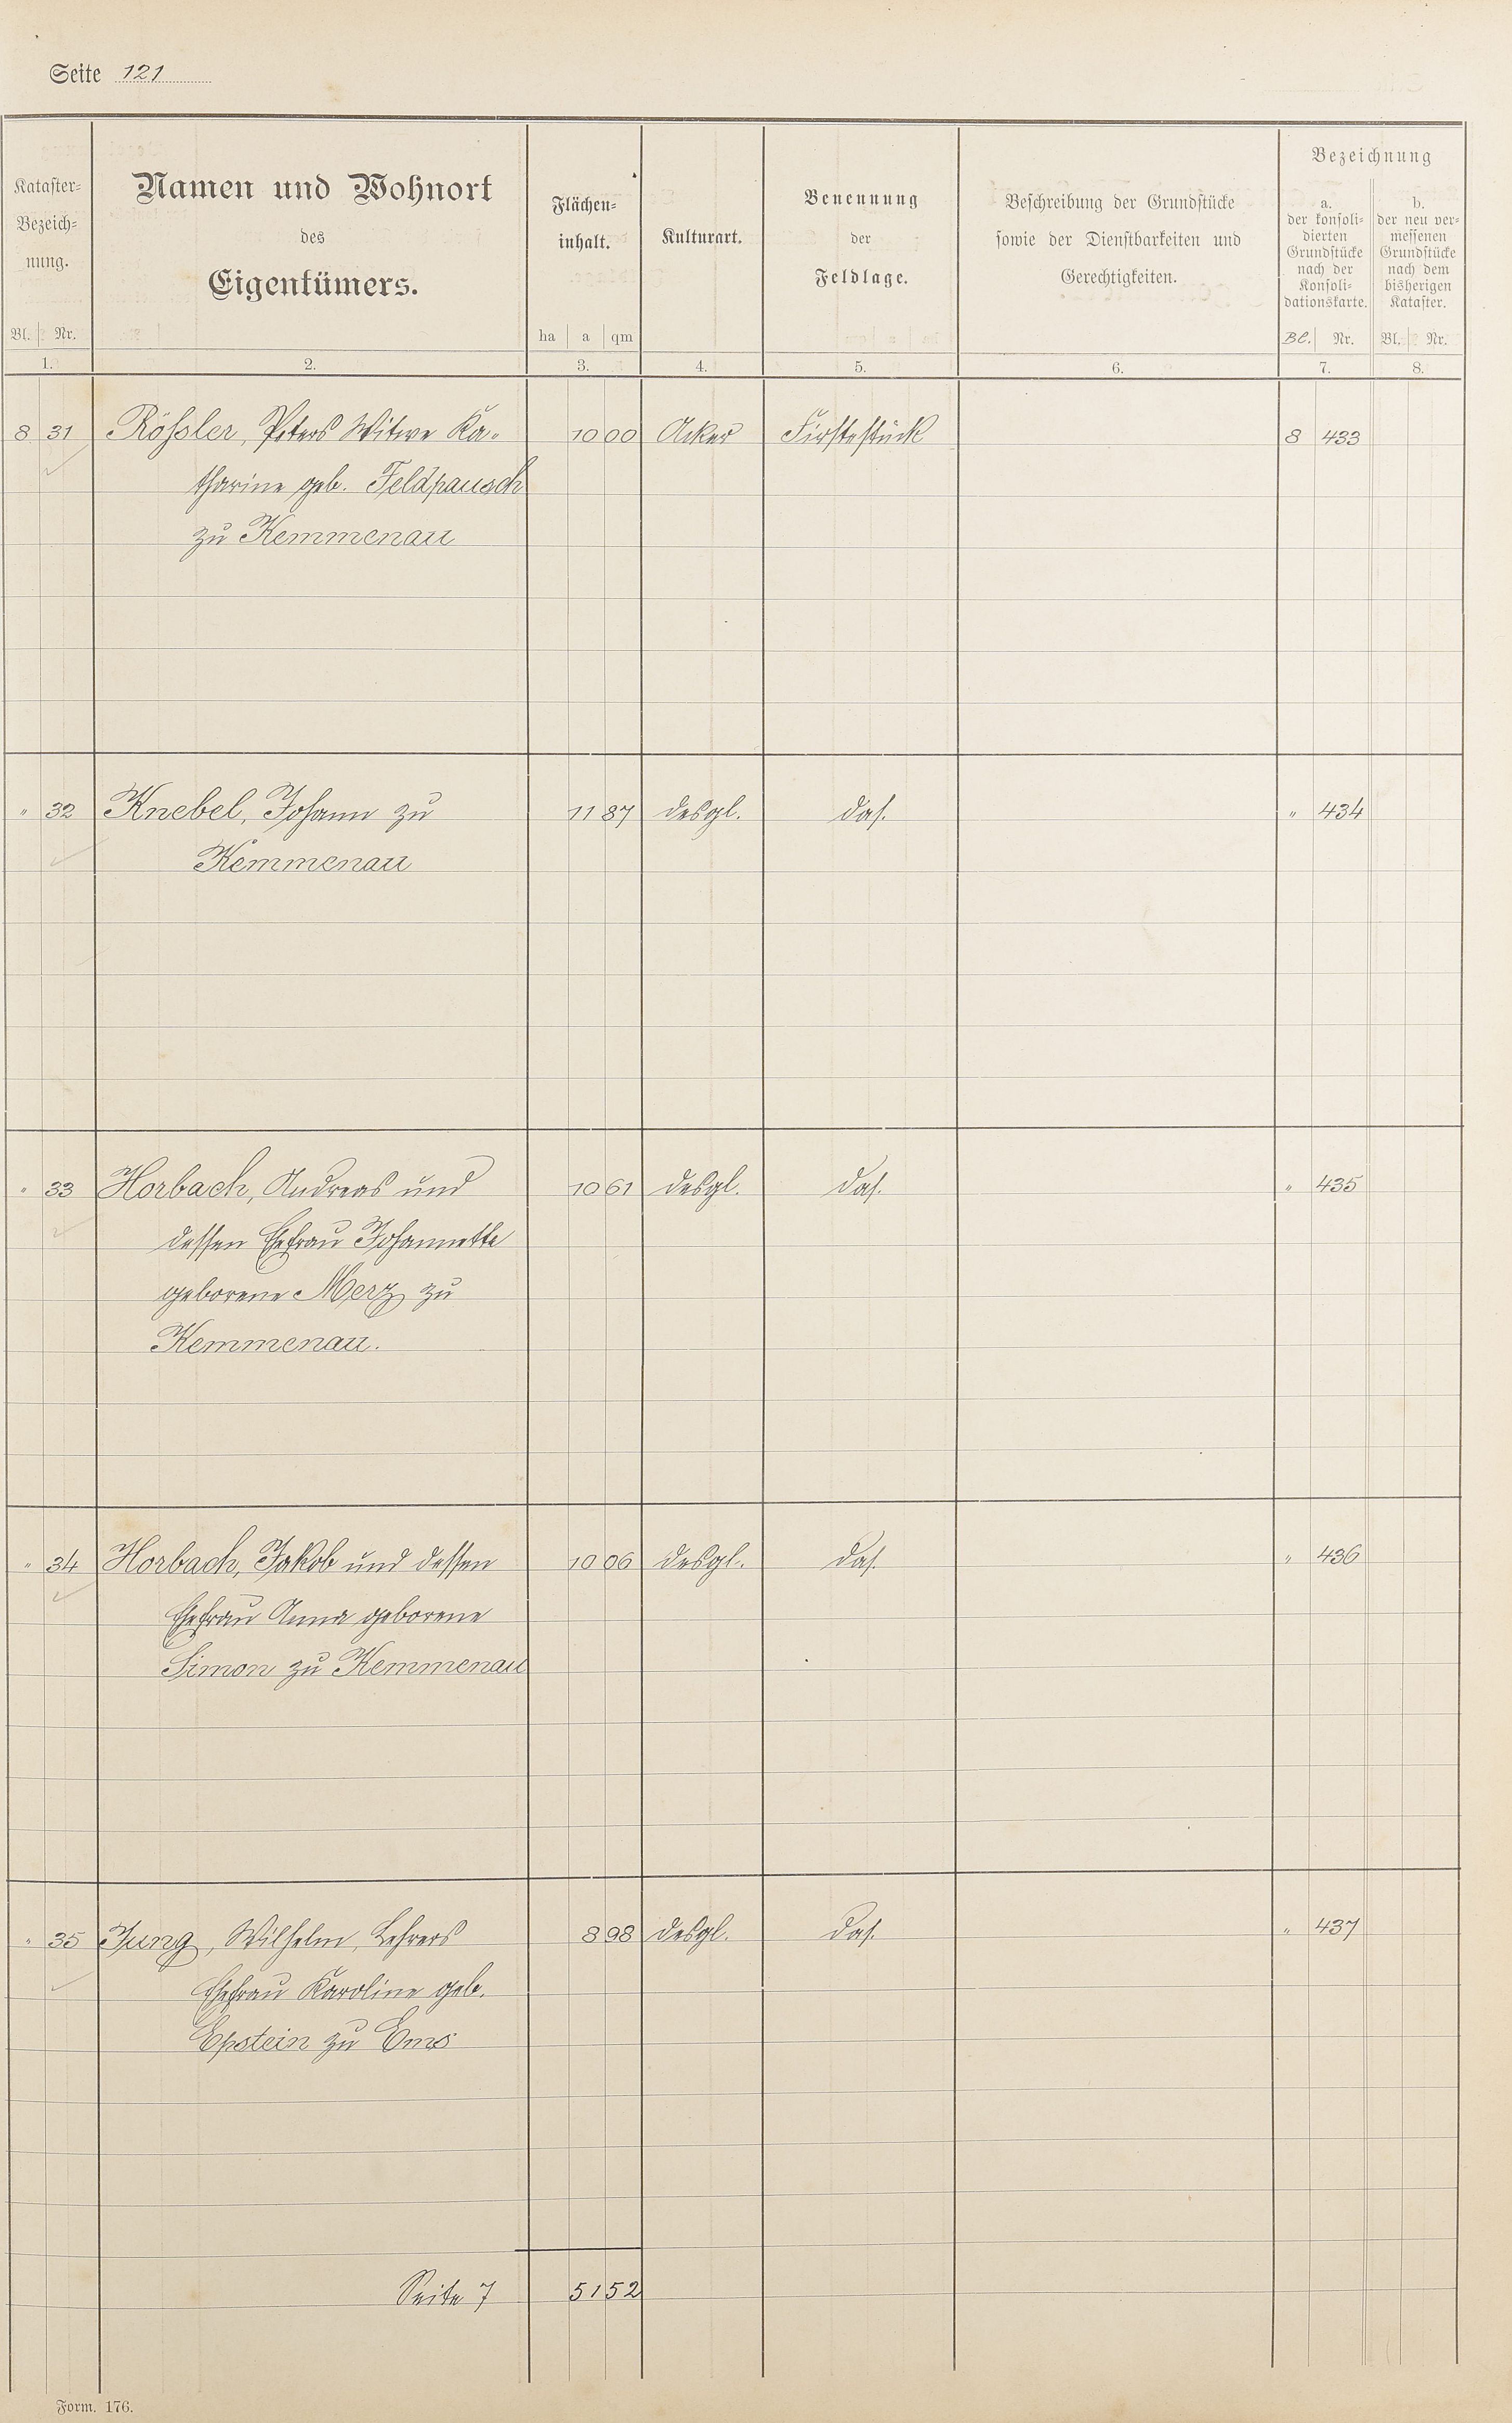 Seite 121
Kataster-
Bezeich-
nung.
Bl. Nr.
1.
Namen und Wohnort
des
Eigentümers.
2.
Flächen-
inhalt.
ha a qm
3.
Kulturart.
4.
Benennung
der
Feldlage.
5.
Beschreibung der Grundstücke
sowie der Dienstbarkeiten und
Gerechtigkeiten.
6.
Bezeichnung
a.
der konsoli-
dierten
Grundstücke
nach der
Konsoli-
dationskarte.
Bl. Nr.
7.
b.
der neu ver-
messenen
Grundstücke
nach dem
bisherigen
Kataster.
Bl. Nr.
8.
8 31 Rößler, Peters Witwe Ka- 10 00 Acker Firstestück 8 433
tharine geb. Feldpausch
zu Kemmenau
" 32 Knebel, Johann zu 11 87 desgl. das. " 434
Kemmenau
" 33 Horbach, Andreas und 10 61 desgl. das. " 435
dessen Ehefrau Johannette
geborene Merz zu
Kemmenau.
" 34 Horbach, Jakob und dessen 10 06 desgl. das. " 436
Ehefrau Anna geborene
Simon zu Kemmenau
" 35 Jung, Wilhelm, Lehrers 8 98 desgl. das. " 437
Ehefrau Karoline geb.
Epstein zu Ems
Seite 7 51 52
Form. 176.